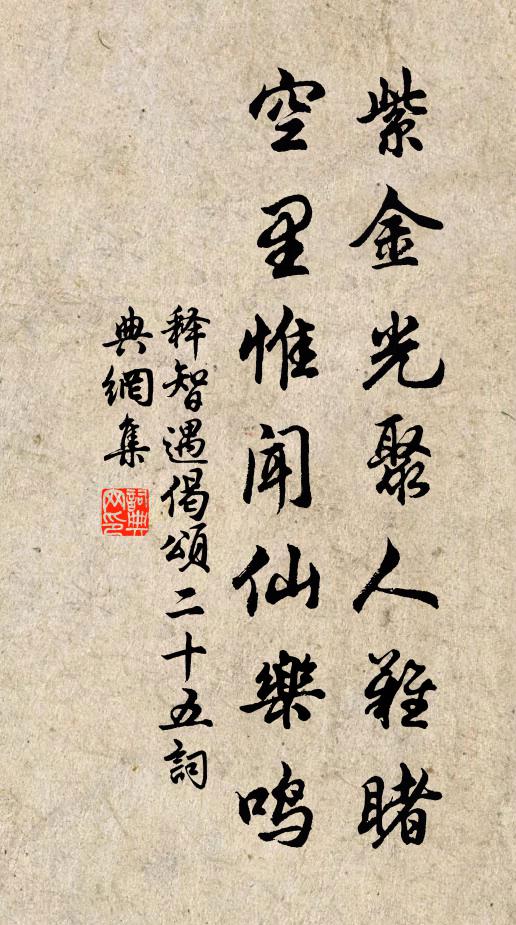 紫金光聚人難睹
空里惟闻仙樂鸣
释智遇偈頌二十五詞
典網集
詞典网印